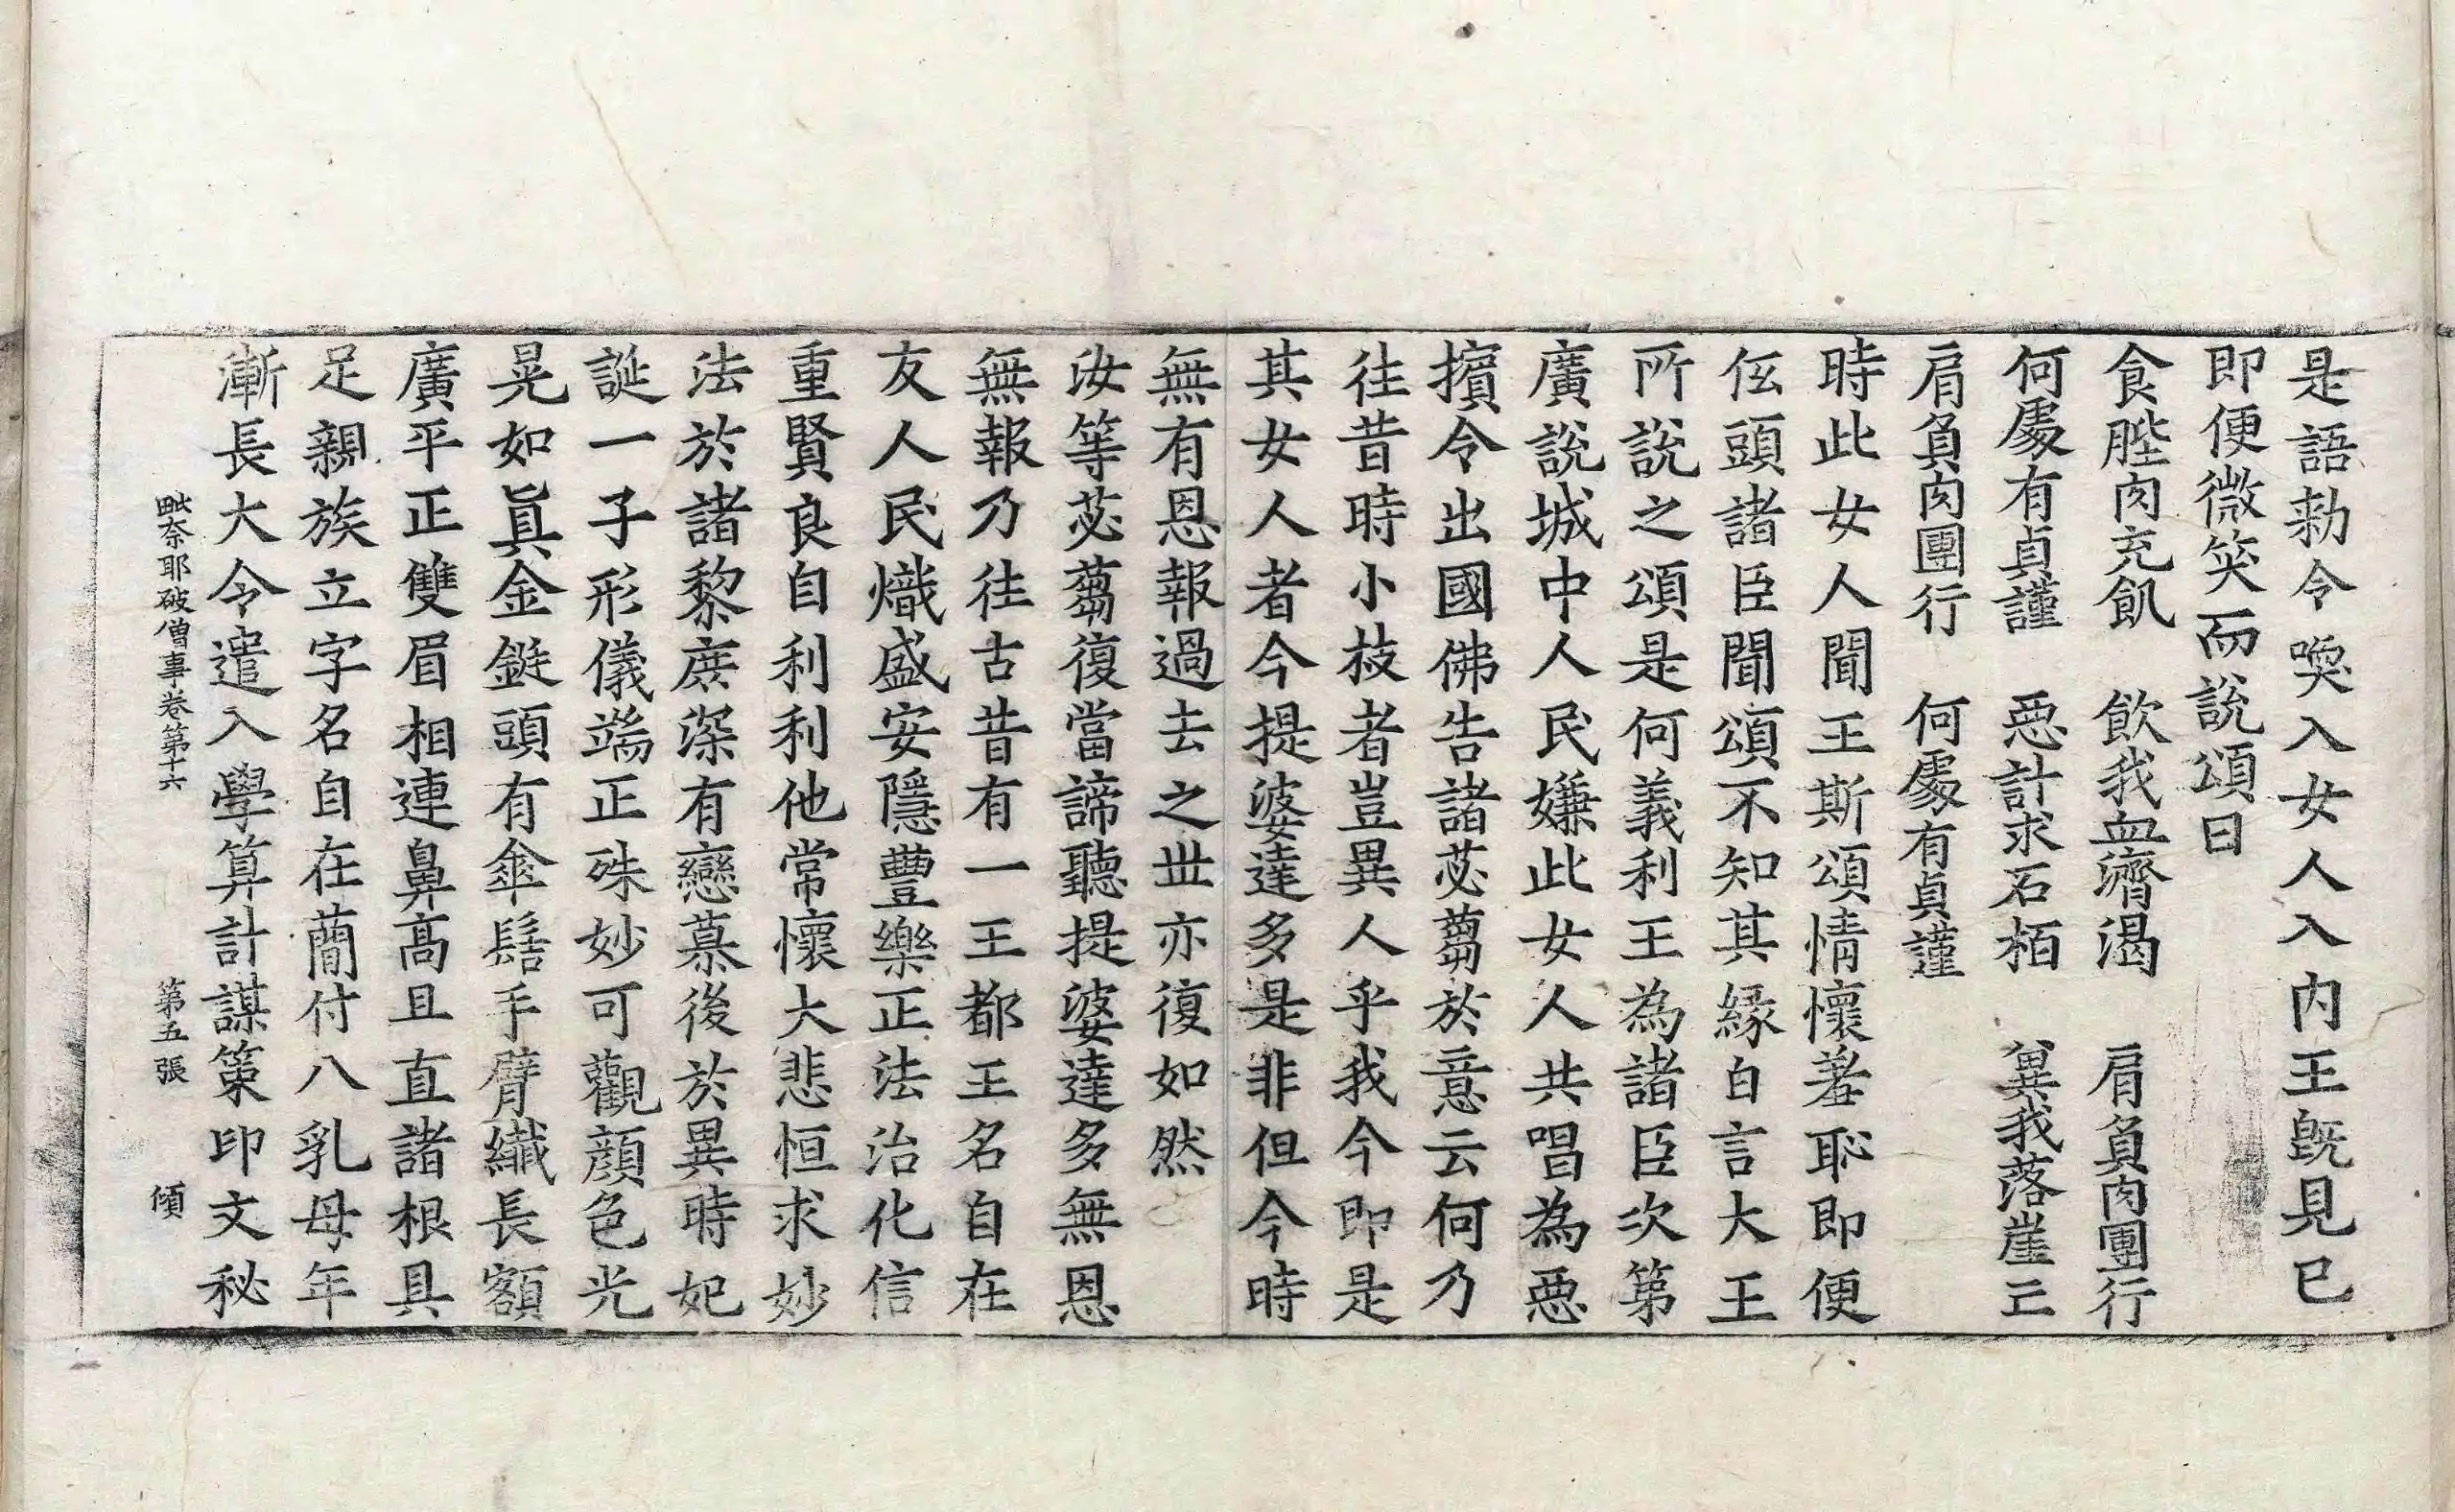 是語勑令喚入女人入內王旣見已
即便微笑而說頌曰
食䏶肉充飢　飮我血濟渴　肩負肉團行
何處有貞謹　惡計求石栢　㒷我落崖亡
肩負肉團行　何處有貞謹
時此女人聞王斯頌情懷羞恥即便
伭頭諸臣聞頌不知其緣白言大王
所說之頌是何義利王為諸臣次第
廣說城中人民嫌此女人共唱為惡
擯令出國佛告諸苾蒭於意云何乃
往昔時小枝者豈異人乎我今即是
其女人者今提婆達多是非但今時
無有恩報過去之丗亦復如然
汝等苾蒭復當諦聽提婆達多無恩
無報乃往古昔有一王都王名自在
友人民熾盛安隱豐樂正法治化信
重賢良自利利他常懷大悲恒求妙
法於諸黎庶深有戀慕後於異時妃
誕一子形儀端正殊妙可觀顔色光
晃如眞金鋌頭有傘髻手臂纖長額
廣平正雙眉相連鼻高且直諸根具
足親族立字名自在蕳付八乳母年
漸長大令遣入學筭計謀策印文秘
毗奈耶破僧事卷第十六　第五張　傾